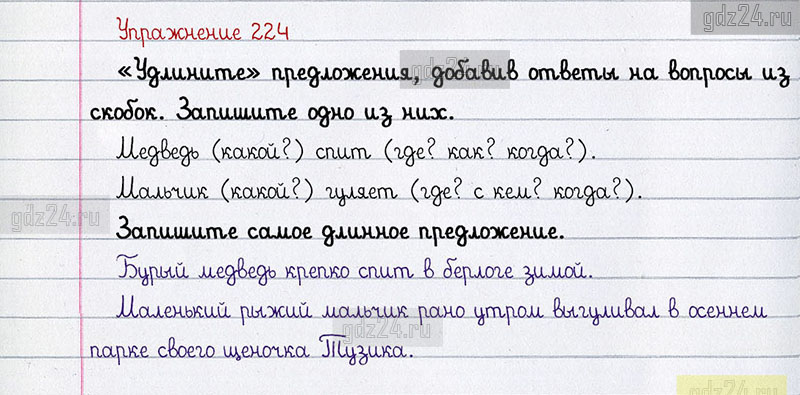 gdz24.ru
Упражнение 224
«Удлините» предложения, добавив ответы на вопросы из
gdz24.ru
скобок. Запишите одно из них.
Медведь (какой?) спит (где? как? когда?).
Мальчик (какой?) гуляет (где? с кем? когда?).
gdz24.ru
Запишите самое длинное предложение.
Бурый медведь крепко спит в берлоге зимой.
Маленький рыжий мальчик рано утром выгуливал в осеннем
gdz24.ru
парке своего щеночка Тузика.
gdz24.ru